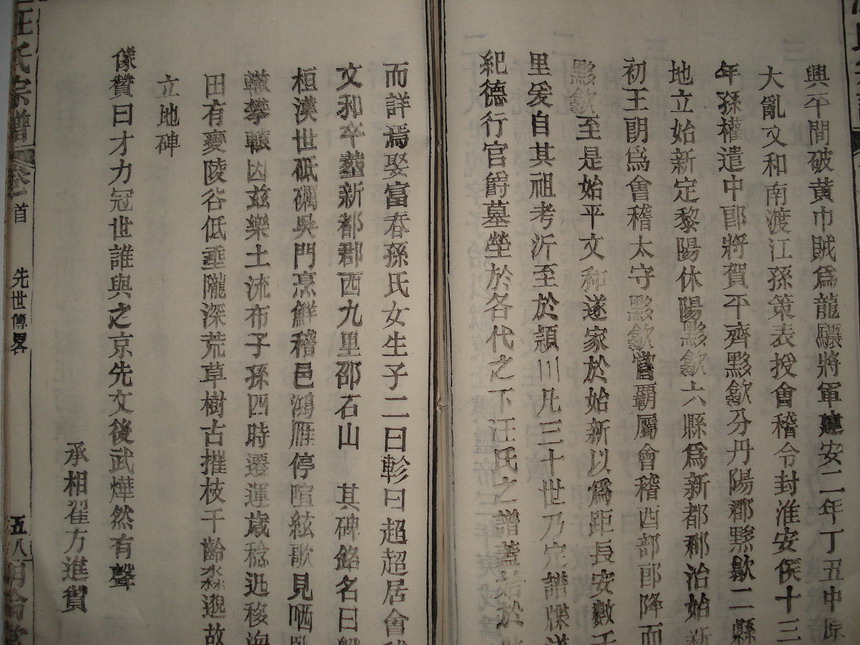 興平間破黃巾賊爲龍驤將軍建安二年丁丑中原
大亂文和南渡江孫策表授會稽令封淮安侯十三
年孫權遣中郎將賀平齊黟歙分丹陽郡黟歙二縣
地立始新定黎陽休陽黟歙六縣爲新都郡治始新
初王朗爲會稽太守黟歙嘗覇屬會稽酉部郎降而
黟歙至是始平文和遂家於始新以爲距長安數千
里爰自其祖考沂至於潁川凡三十世乃定譜牒
紀德行官爵墓塋於各代之下汪氏之譜蓋始於
而詳焉娶富春孫氏女生子二曰軫曰超超居會
文和卒塟新都郡西九里邵石山 其碑銘名曰
桓漢世砥礪吳門烹鮮稽邑鴻雁停喧絃歌見哂
轍攀轅因兹樂土流布子孫四時遷運歲稔迅移海
田有變陵谷低垂隴深荒草樹古摧枝千齡淼邈故
立地碑
像贊曰才力冠世誰與之京先文後武燁然有聲
承相翟方進贊
汪氏宗譜
卷
首
先世傳畧
五八